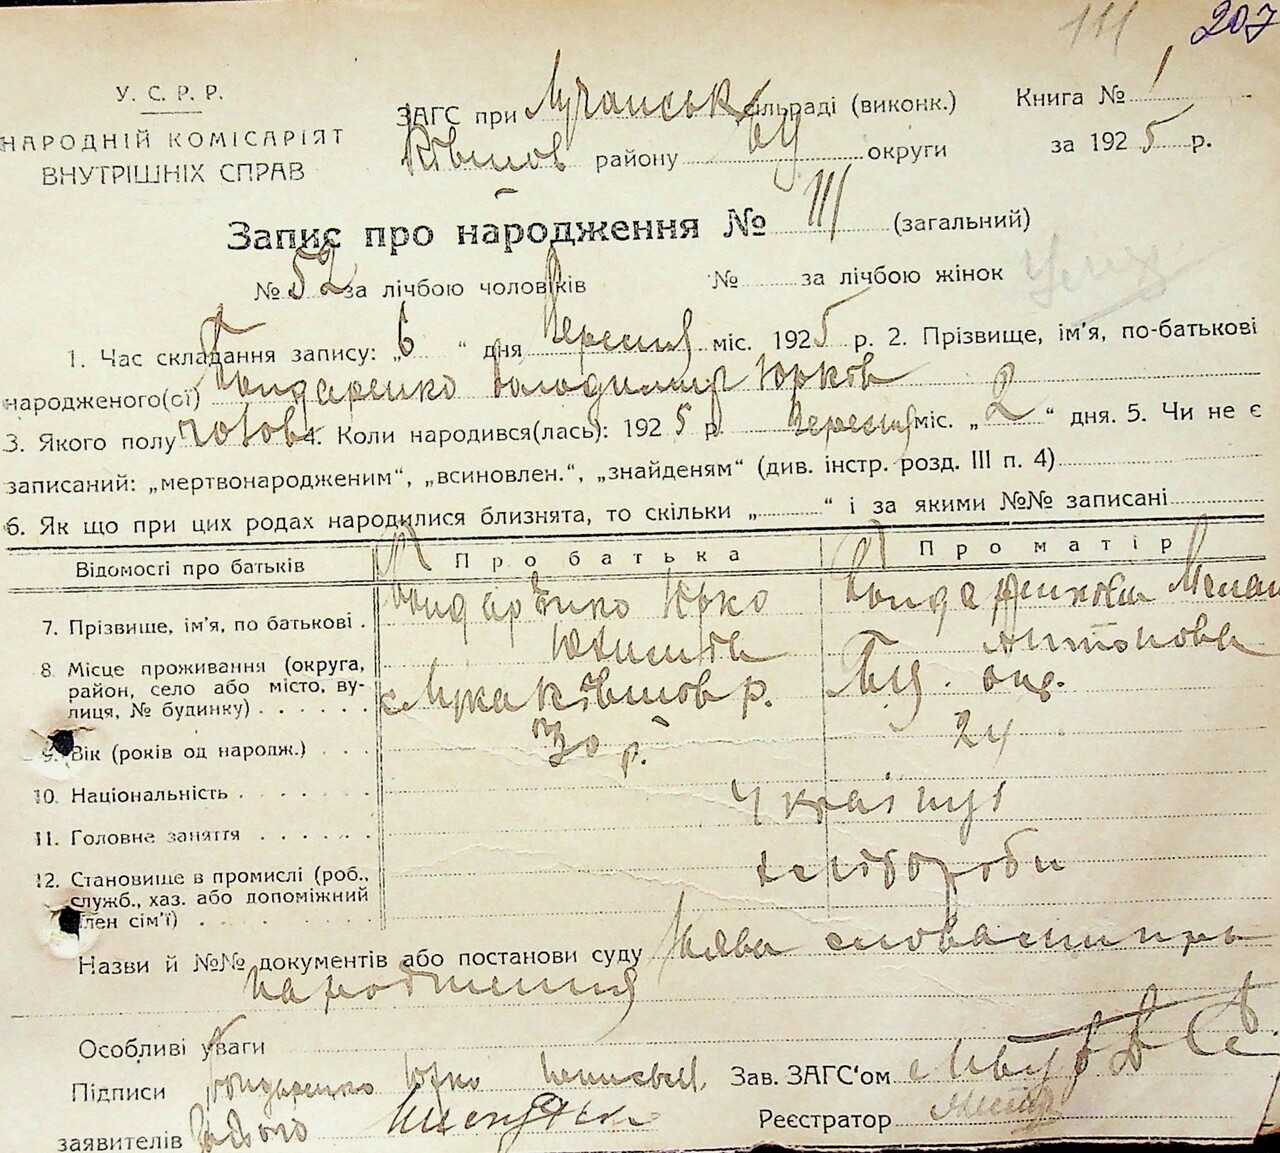 111 207
У. С. Р. Р.
НАРОДНІЙ КОМІСАРІЯТ
ВНУТРІШНІХ СПРАВ
ЗАГС при Лучанськ сільраді (виконк.) Книга № 1
району БЦ округи за 1925 р.
Запис про народження № 111 (загальний)
№ 52 за лічбою чоловіків № за лічбою жінок
1. Час складання запису: „6 “ дня Вересня міс. 1925 р. 2. Прізвище, ім’я, по-батькові
народженого(ої) Бондаренко Володимир Юрков
3. Якого полу чолов 4. Коли народився(лась): 1925 р. Вересня міс. „2“ дня. 5. Чи не є
записаний: „мертвонародженим“, „всиновлен.“, „знайденям“ (див. інстр. розд. III п. 4)
6. Як що при цих родах народилися близнята, то скільки „ “ і за якими №№ записані
Відомості про батьків Про батька Про матір
7. Прізвище, ім’я, по батькові . Бондаренко Юрко Бондаренкова
Антонова
8 Місце проживання (округа,
район, село або місто, ву-
лиця, № будинку) . . . . . . с Лука р. БЦ. окр.
9. Вік (років од народж.) . . . 30 р. 24
10. Національність . . . . . . . Українці
11. Головне заняття . . . . . .
12. Становище в промислі (роб., хлібороби
служб., хаз. або допоміжний
член сім’ї) . . . . . . . .
Назви й №№ документів або постанови суду Заява словесни про
народження
Особливі уваги
Підписи Бондаренко Юрко Зав. ЗАГС‘ом
заявителів Реєстратор